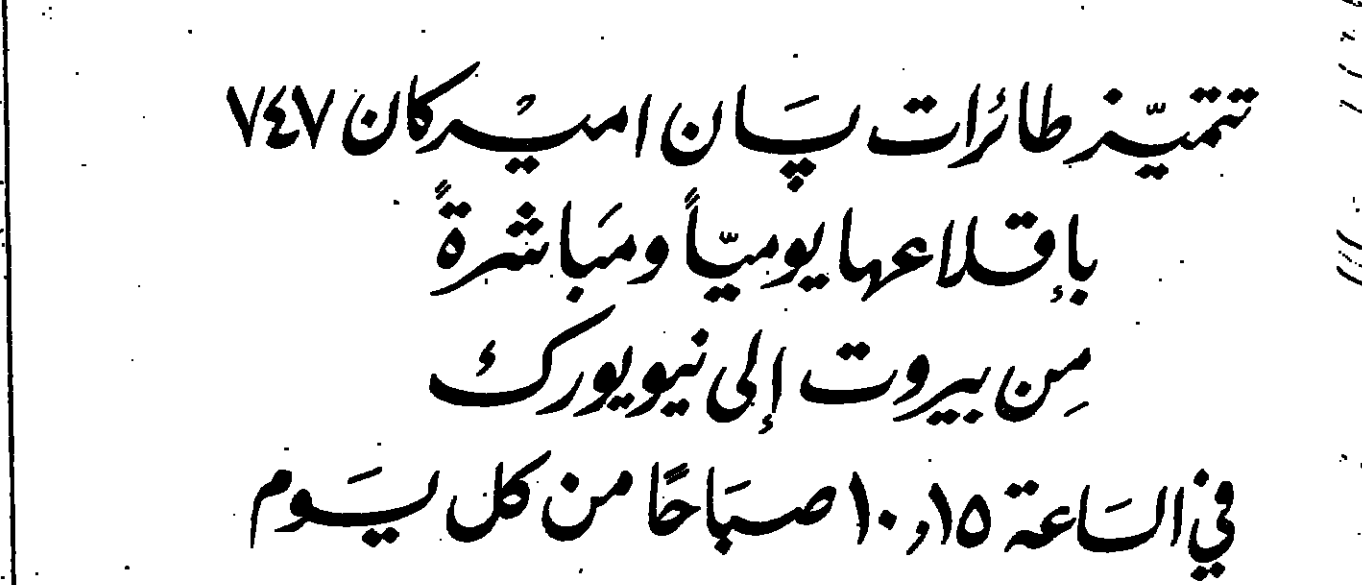 تتميّز طائرات پَان اميْركان ٧٤٧
بإقلاعها يوميّاً ومبَاشرةً
مِن بيروت إلى نيويورك
في السَاعة ١٠,١٥ صبَاحًا من كل يَوم